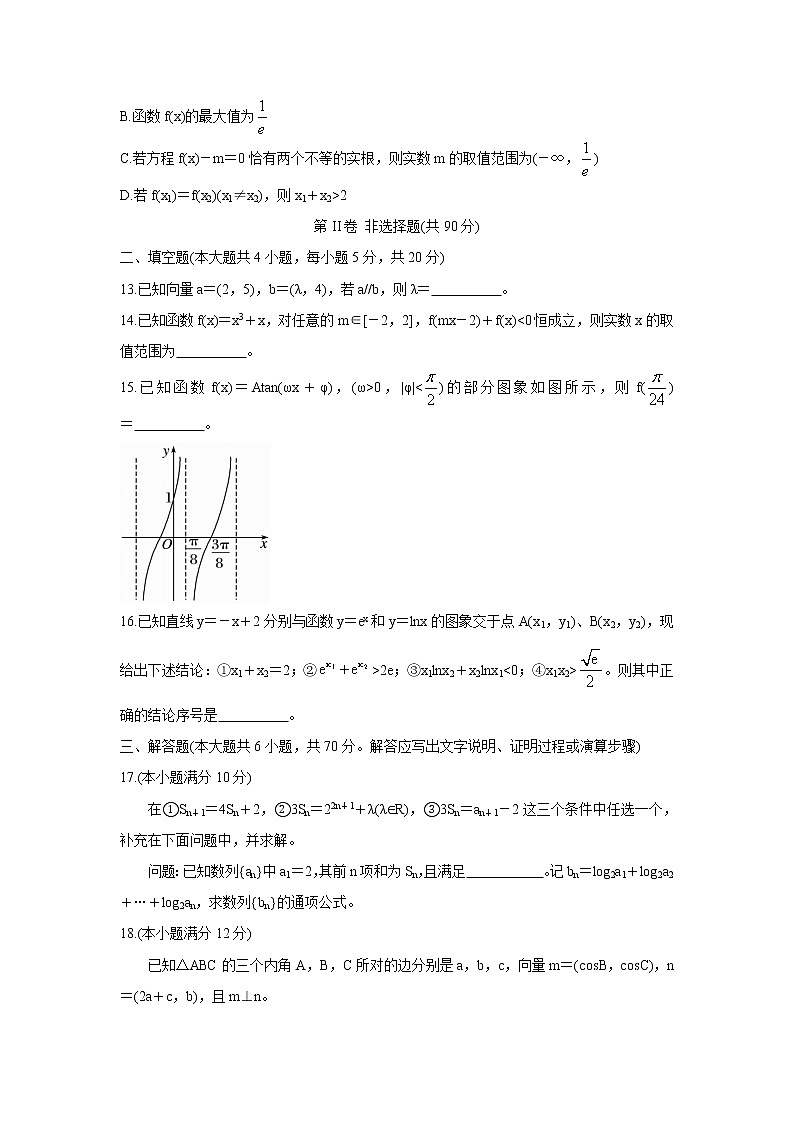 B.函数 f(x)的最大值为 1/e
C.若方程 f(x)－m＝0 恰有两个不等的实根，则实数 m 的取值范围为(－∞，1/e)
D.若 f(x₁)＝f(x₂)(x₁≠x₂)，则 x₁＋x₂>2
第 II 卷 非选择题(共 90 分)
二、填空题(本大题共 4 小题，每小题 5 分，共 20 分)
13.已知向量 a＝(2，5)，b＝(λ，4)，若 a//b，则 λ＝__________。
14.已知函数 f(x)＝x³＋x，对任意的 m∈[－2，2]，f(mx－2)＋f(x)<0 恒成立，则实数 x 的取
值范围为__________。
15.已知函数 f(x)＝Atan(ωx＋φ)，(ω>0，|φ|<π/2)的部分图象如图所示，则 f(π/24)
＝__________。
y
1
O π/8 3π/8 x
16.已知直线 y＝－x＋2 分别与函数 y＝eˣ和 y＝lnx 的图象交于点 A(x₁，y₁)、B(x₂，y₂)，现
给出下述结论：①x₁＋x₂＝2；②e^x₁＋e^x₂>2e；③x₁lnx₂＋x₂lnx₁<0；④x₁x₂>√e/2。则其中正
确的结论序号是__________。
三、解答题(本大题共 6 小题，共 70 分。解答应写出文字说明、证明过程或演算步骤)
17.(本小题满分 10 分)
在①Sₙ₊₁＝4Sₙ＋2，②3Sₙ＝2²ⁿ⁺¹＋λ(λ∈R)，③3Sₙ＝aₙ₊₁－2 这三个条件中任选一个，
补充在下面问题中，并求解。
问题：已知数列{aₙ}中 a₁＝2，其前 n 项和为 Sₙ，且满足___________。记 bₙ＝log₂a₁＋log₂a₂
＋…＋log₂aₙ，求数列{bₙ}的通项公式。
18.(本小题满分 12 分)
已知△ABC 的三个内角 A，B，C 所对的边分别是 a，b，c，向量 m＝(cosB，cosC)，n
＝(2a＋c，b)，且 m⊥n。